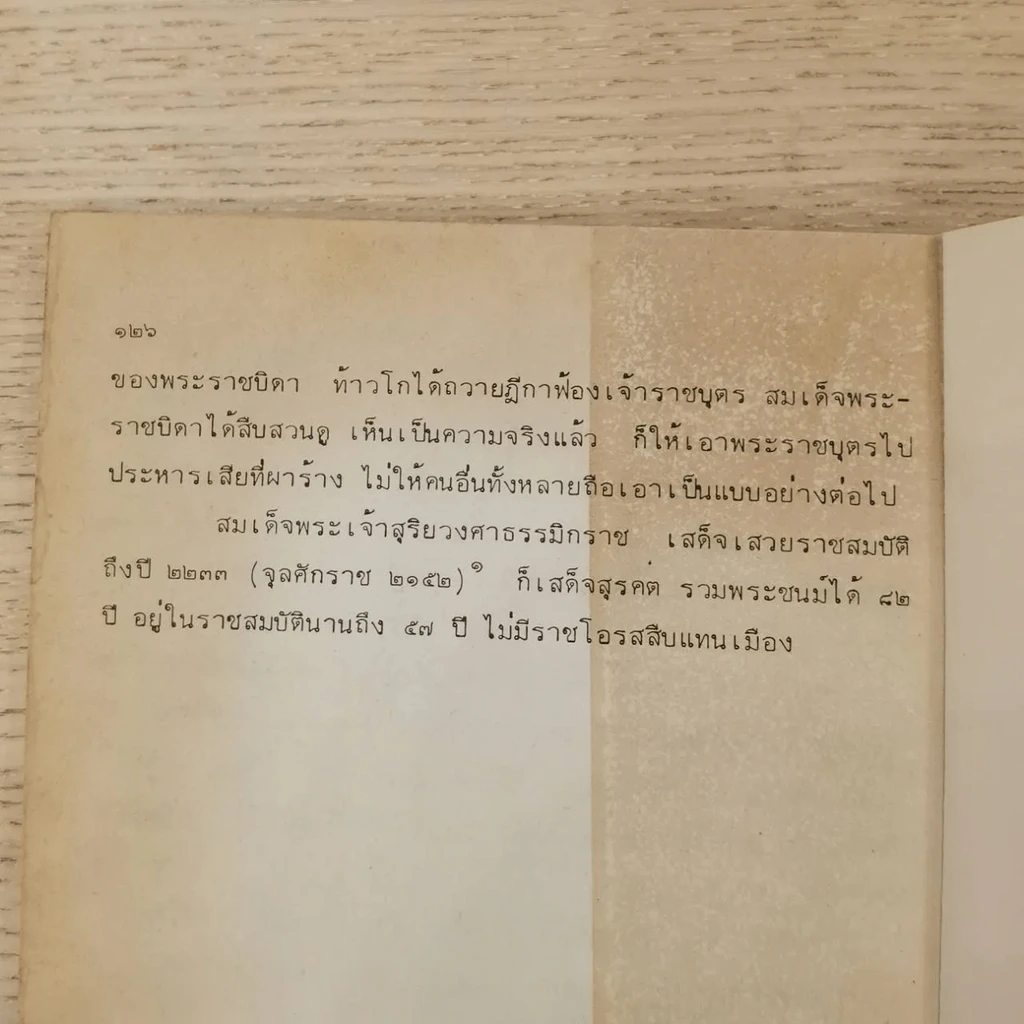 ๑๒๖
ของพระราชบิดา ท้าวโกได้ถวายฎีกาฟ้องเจ้าราชบุตร สมเด็จพระ-
ราชบิดาได้สืบสวนดู เห็นเป็นความจริงแล้ว ก็ให้เอาพระราชบุตรไป
ประหารเสียที่ผาร้าง ไม่ให้คนอื่นทั้งหลายถือเอาเป็นแบบอย่างต่อไป
สมเด็จพระเจ้าสุริยวงศาธรรมิกราช เสด็จเสวยราชสมบัติ
ถึงปี ๒๒๓๓ (จุลศักราช ๒๑๕๒)๑ ก็เสด็จสุรคต รวมพระชนม์ได้ ๘๒
ปี อยู่ในราชสมบัตินานถึง ๕๗ ปี ไม่มีราชโอรสสืบแทนเมือง